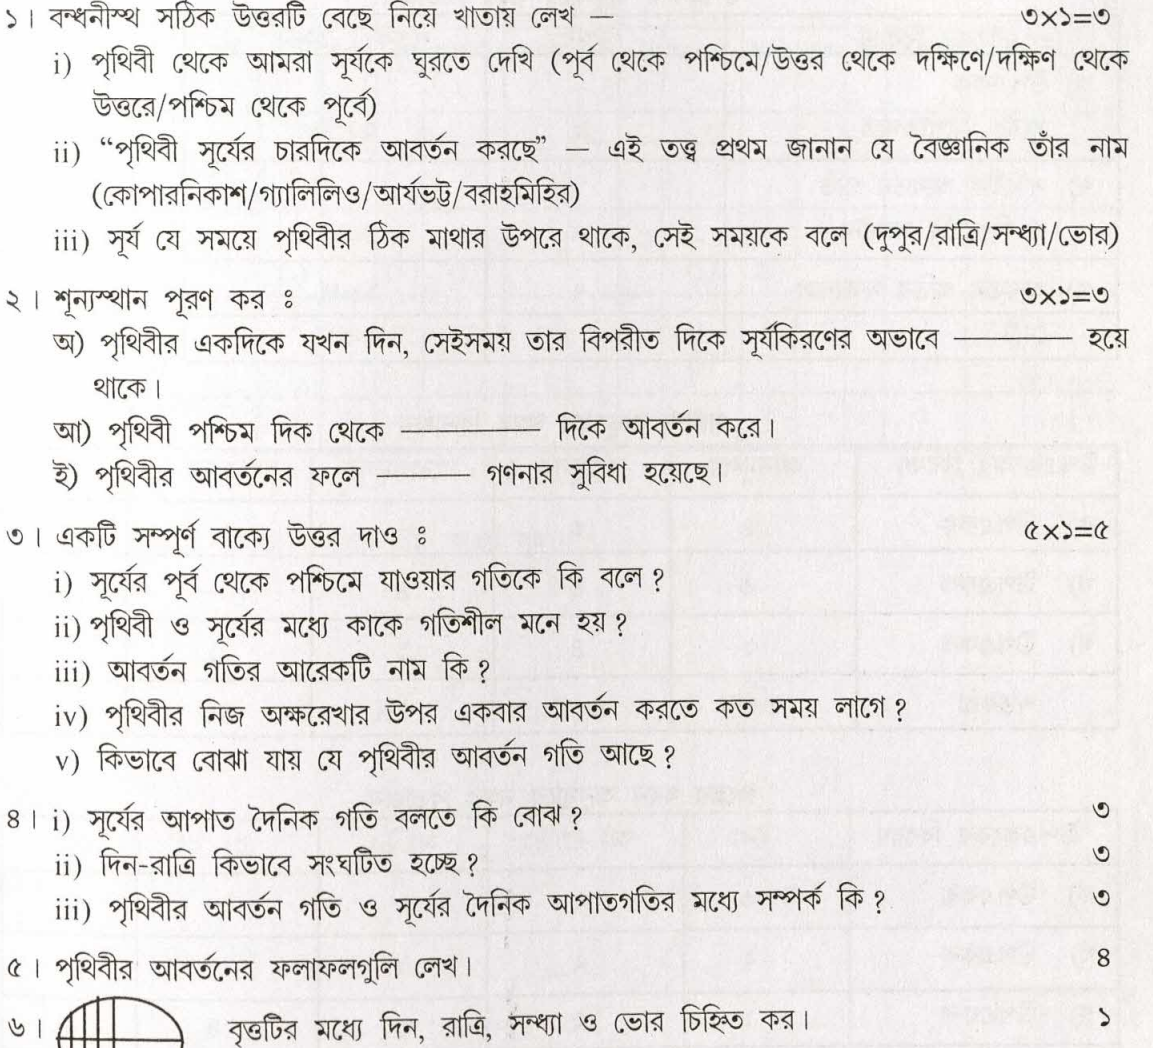 ১। বন্ধনীস্থ সঠিক উত্তরটি বেছে নিয়ে খাতায় লেখ — ৩×১=৩
i) পৃথিবী থেকে আমরা সূর্যকে ঘুরতে দেখি (পূর্ব থেকে পশ্চিমে/উত্তর থেকে দক্ষিণে/দক্ষিণ থেকে
উত্তরে/পশ্চিম থেকে পূর্বে)
ii) “পৃথিবী সূর্যের চারদিকে আবর্তন করছে” — এই তত্ত্ব প্রথম জানান যে বৈজ্ঞানিক তাঁর নাম
(কোপারনিকাশ/গ্যালিলিও/আর্যভট্ট/বরাহমিহির)
iii) সূর্য যে সময়ে পৃথিবীর ঠিক মাথার উপরে থাকে, সেই সময়কে বলে (দুপুর/রাত্রি/সন্ধ্যা/ভোর)
২। শূন্যস্থান পূরণ কর ঃ ৩×১=৩
অ) পৃথিবীর একদিকে যখন দিন, সেইসময় তার বিপরীত দিকে সূর্যকিরণের অভাবে ———— হয়ে
থাকে।
আ) পৃথিবী পশ্চিম দিক থেকে ———— দিকে আবর্তন করে।
ই) পৃথিবীর আবর্তনের ফলে ——— গণনার সুবিধা হয়েছে।
৩। একটি সম্পূর্ণ বাক্যে উত্তর দাও ঃ ৫×১=৫
i) সূর্যের পূর্ব থেকে পশ্চিমে যাওয়ার গতিকে কি বলে?
ii) পৃথিবী ও সূর্যের মধ্যে কাকে গতিশীল মনে হয়?
iii) আবর্তন গতির আরেকটি নাম কি?
iv) পৃথিবীর নিজ অক্ষরেখার উপর একবার আবর্তন করতে কত সময় লাগে?
v) কিভাবে বোঝা যায় যে পৃথিবীর আবর্তন গতি আছে?
৪। i) সূর্যের আপাত দৈনিক গতি বলতে কি বোঝ? ৩
ii) দিন-রাত্রি কিভাবে সংঘটিত হচ্ছে? ৩
iii) পৃথিবীর আবর্তন গতি ও সূর্যের দৈনিক আপাতগতির মধ্যে সম্পর্ক কি? ৩
৫। পৃথিবীর আবর্তনের ফলাফলগুলি লেখ। ৪
৬। বৃত্তটির মধ্যে দিন, রাত্রি, সন্ধ্যা ও ভোর চিহ্নিত কর। ১